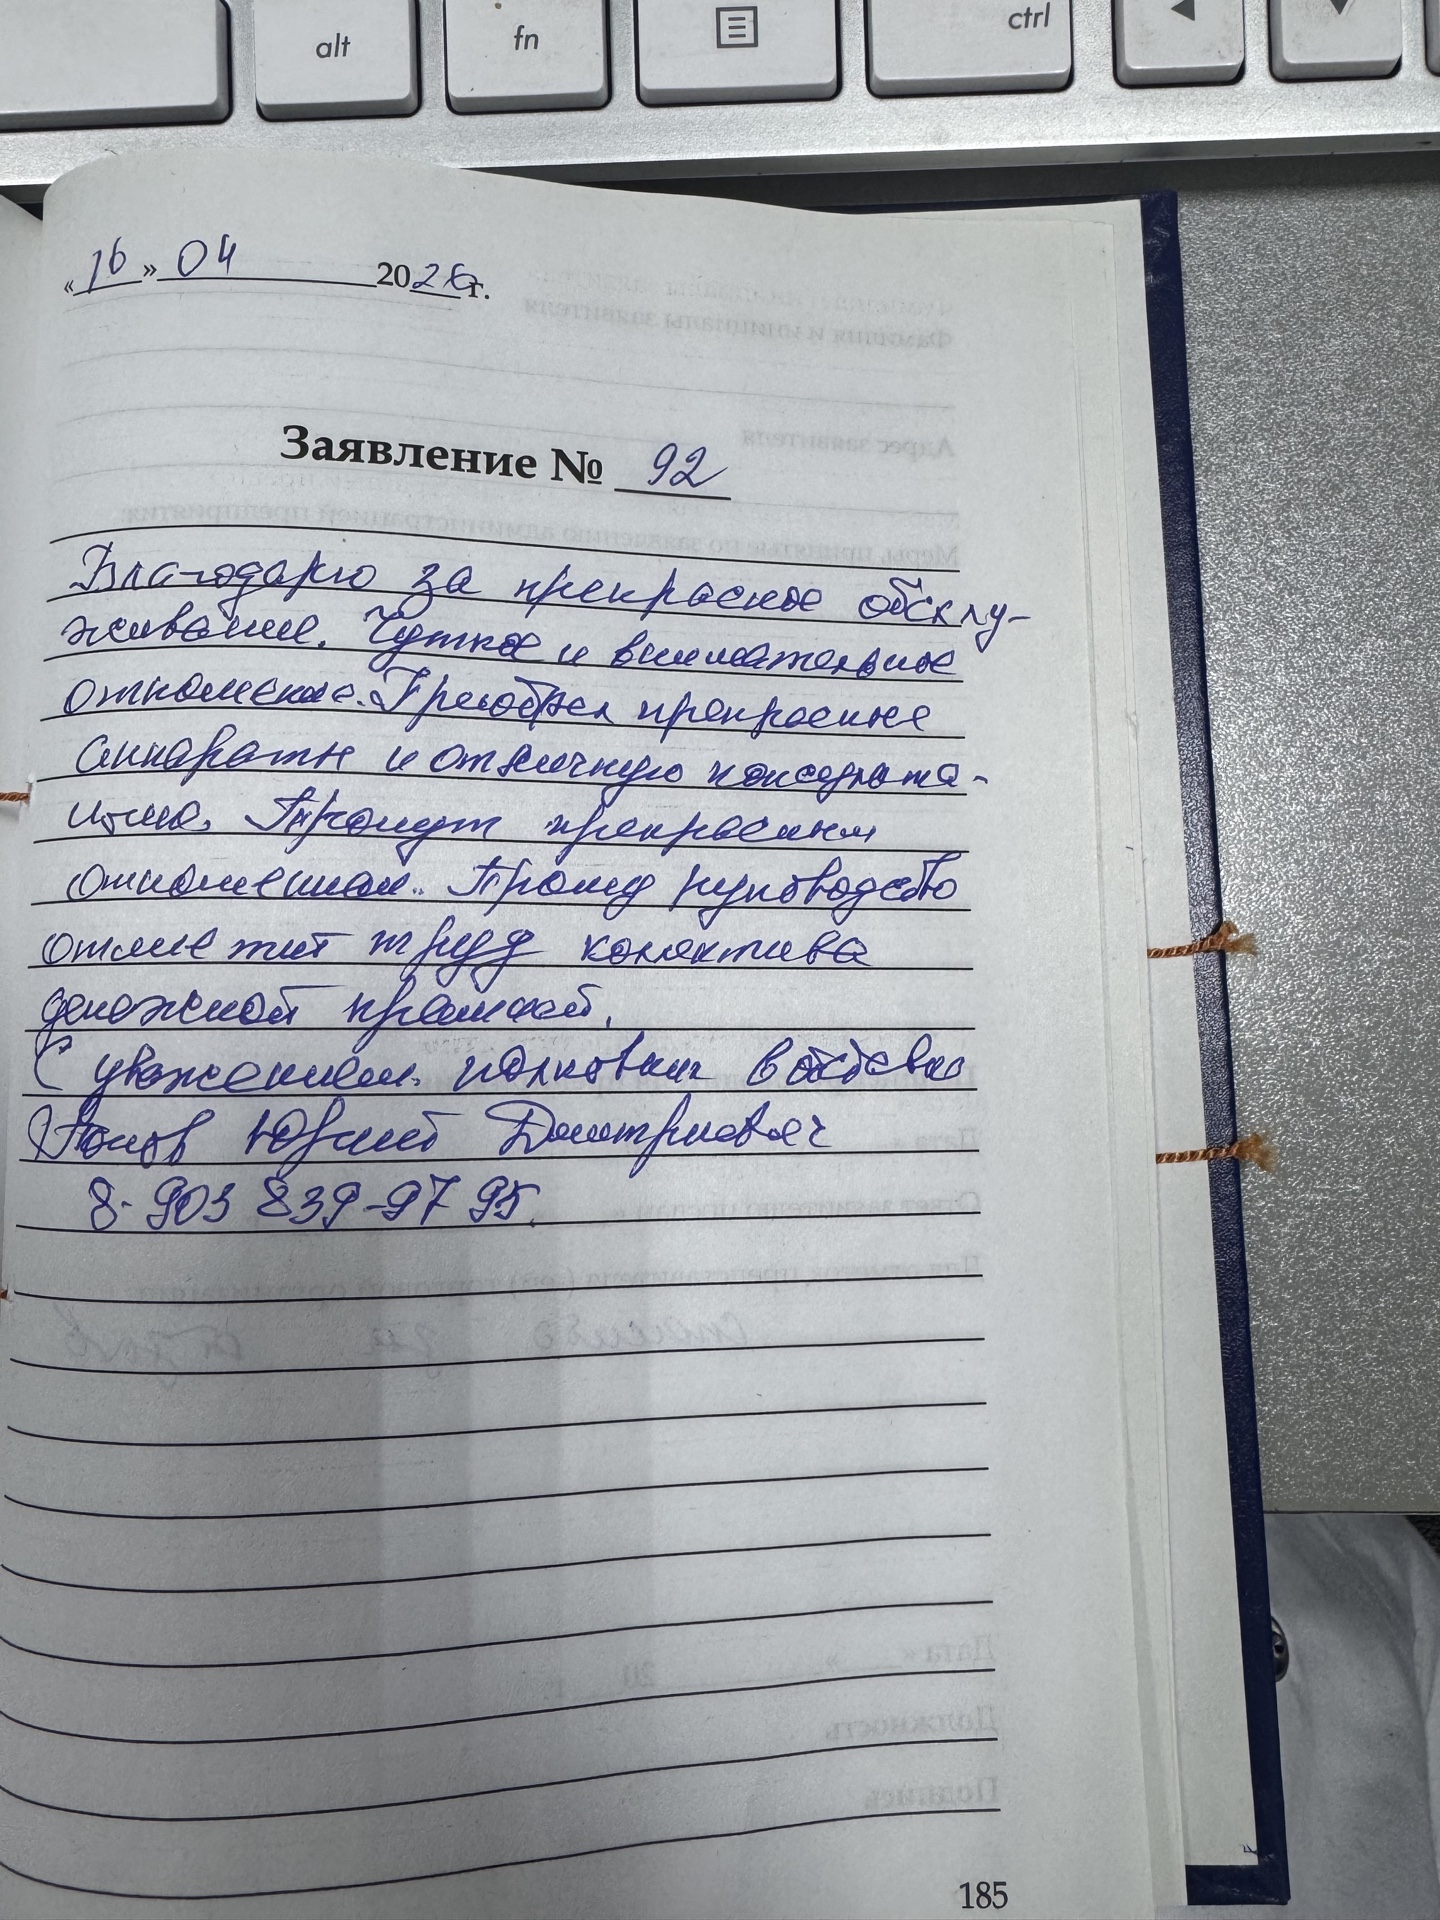 alt fn ctrl
«16» 04 2026г.
Заявление № 92
Благодарю за прекрасное обслу-
живание. Чуткое и внимательное
отношение. Приобрел прекрасные
аппараты и отличную консульта-
цию. прекрасным
отношением. Прошу руководство
отметит труд колектива
денежной премией.
С уважением полковник в отставке
Юрий Дмитриевич
8-903 839-97 95
185